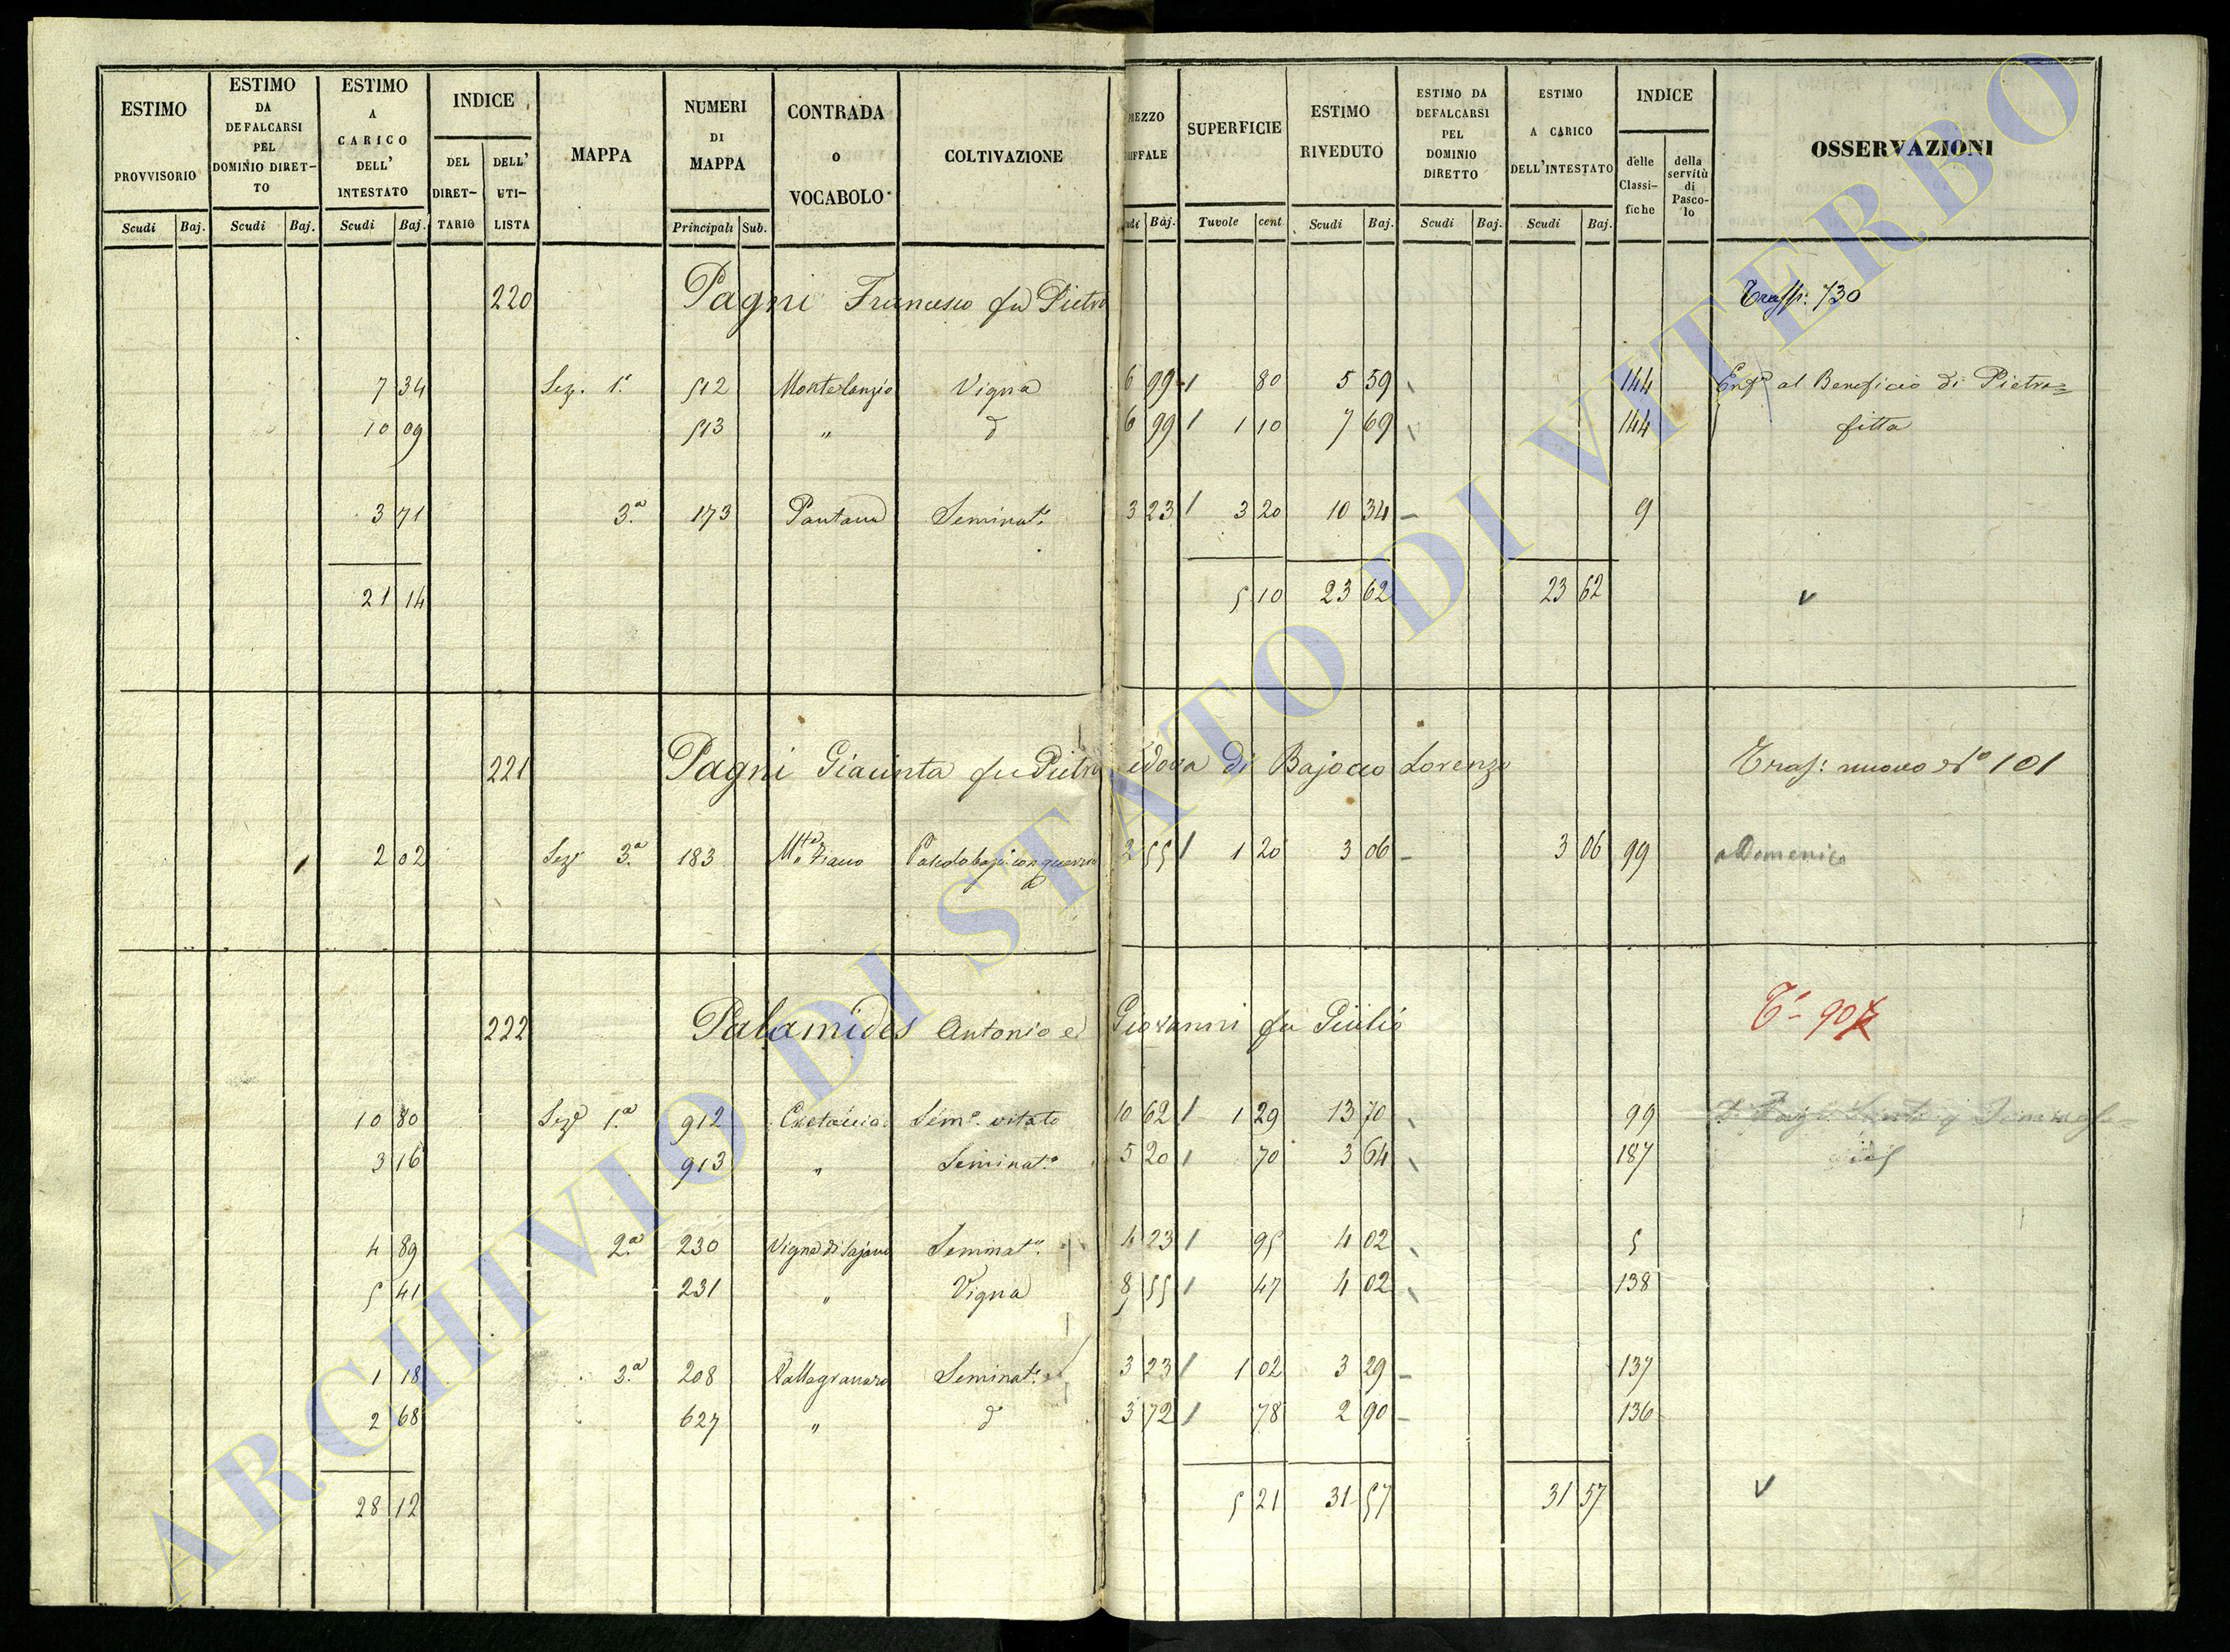 ESTIMO PROVVISORIO Scudi Baj.
ESTIMO DA DEFALCARSI PEL DOMINIO DIRET-TO Scudi Baj.
ESTIMO A CARICO DELL' INTESTATO Scudi Baj.
INDICE DEL DIRET-TARIO DELL' UTI-LISTA
MAPPA
NUMERI DI MAPPA Principali Sub.
CONTRADA O VOCABOLO
COLTIVAZIONE
SUPERFICIE Tavole cent
ESTIMO RIVEDUTO Scudi Baj.
ESTIMO DA DEFALCARSI PEL DOMINIO DIRETTO Scudi Baj.
ESTIMO A CARICO DELL'INTESTATO Scudi Baj.
INDICE delle Classi-fiche della servitù di Pasco-lo
OSSERVAZIONI
220 Pagni Francesco fu Pietro Trasp. 730
7 34 Sez. 1ª 512 Vigna 6 99 80 5 59 144 al Beneficio di Pietra=
10 09 513 " d 6 99 1 10 7 69 144 fitta
3 71 3ª 173 Pantana Seminat° 3 23 3 20 10 34 9
21 14 5 10 23 62 23 62
221 Pagni Giacinta fu Pietro Vedova di Bajocco Lorenzo Trasf: nuovo N° 101
2 02 Sez 3ª 183 2 55 1 20 3 06 3 06 99 a Domenico
222 Palamides Antonio e Giovanni fu Giulio
10 80 Sez 1ª 912 Sem° vitato 10 62 1 29 13 70 99
3 16 913 " Seminat° 5 20 70 3 64 187
4 89 2ª 230 Seminat° 4 23 95 4 02 5
5 41 231 " Vigna 8 55 47 4 02 138
1 18 3ª 208 Vallegranaro Seminat° 3 23 1 02 3 29 137
2 68 627 " d 3 72 78 2 90 136
28 12 5 21 31 57 31 57
ARCHIVIO DI STATO DI VITERBO